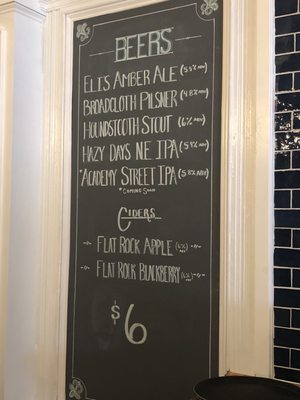 BEERS
ELI'S AMBER ALE (5.5% ABV)
BROADCLOTH PILSNER (4.8% ABV)
HOUNDSTOOTH STOUT (6% ABV)
HAZY DAYS NE IPA (5.9% ABV)
*ACADEMY STREET IPA (5.8% ABV)
*COMING SOON
CIDERS
FLAT ROCK APPLE (6%)
FLAT ROCK BLACKBERRY (6%)
$6